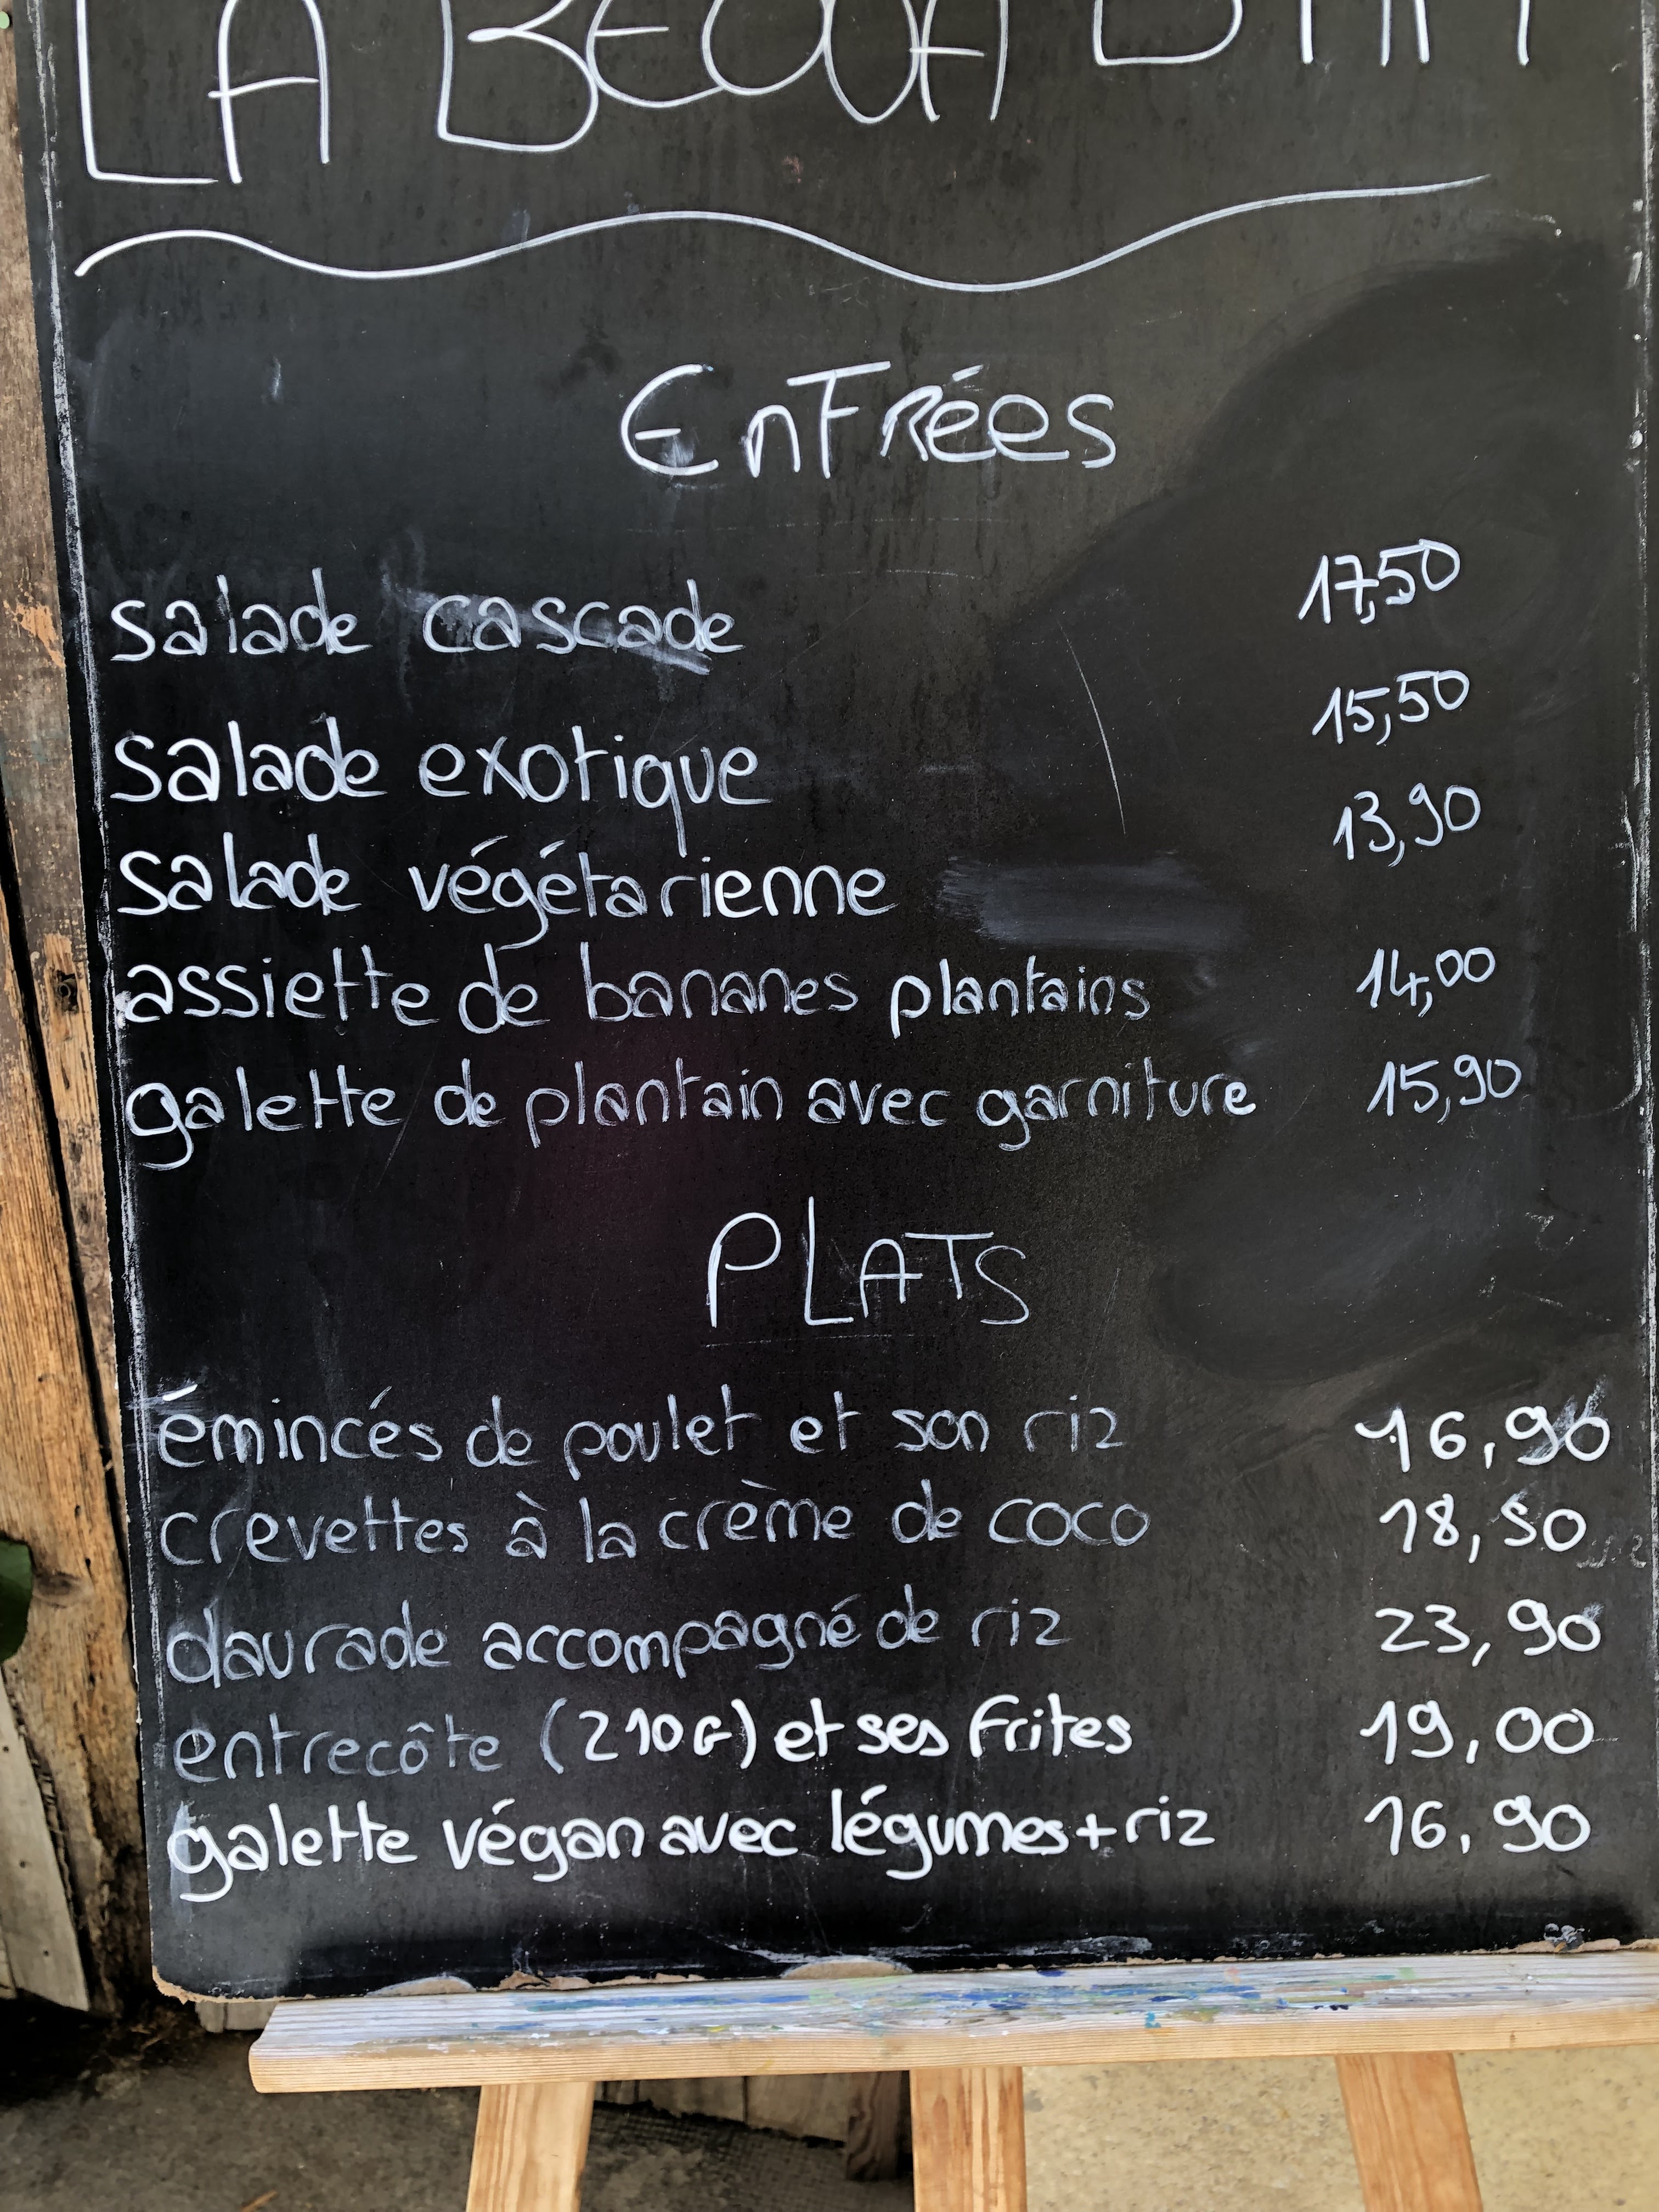 LA
EnTRées
salade cascade 17,50
salade exotique 15,50
salade végétarienne 13,90
assiette de bananes plantains 14,00
galette de plantain avec garniture 15,90
PLATS
émincés de poulet et son riz 16,90
crevettes à la crème de coco 18,50
daurade accompagné de riz 23,90
entrecôte (210G) et ses frites 19,00
galette végan avec légumes+riz 16,90